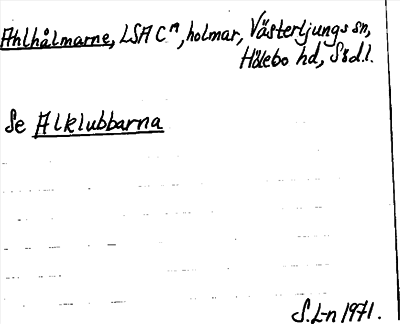 Ahlhålmarne, LSA Cⁿ, holmar, Västerljungs sn,
Hölebo hd, Södl.
Se Alklubbarna
S. L-n 1971.